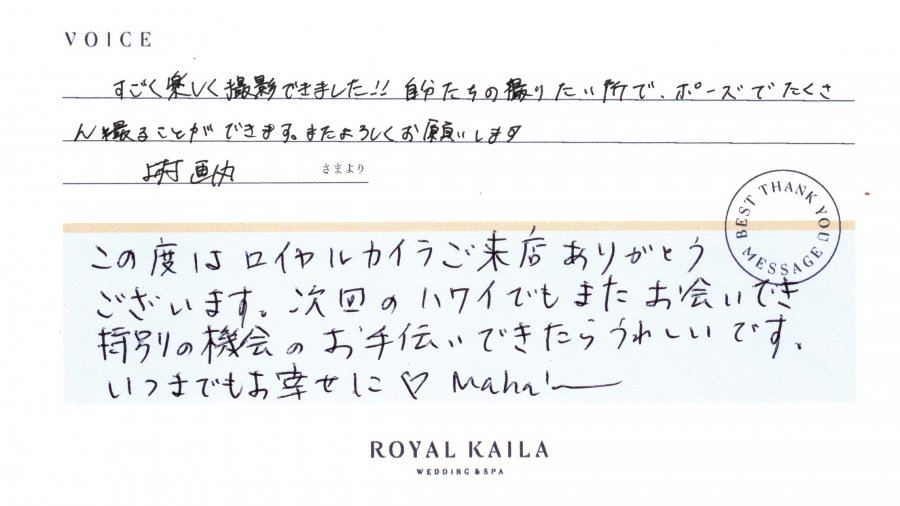 VOICE
すごく楽しく撮影できました!! 自分たちの撮りたい所で、ポーズでたくさ
ん撮ることができます。またよろしくお願いします
さまより
BEST THANK YOU MESSAGE
この度はロイヤルカイラご来店ありがとう
ございます。次回のハワイでもまたお会いでき
特別の機会のお手伝いできたらうれしいです。
いつまでもお幸せに♡ Maha!
ROYAL KAILA
WEDDING & SPA